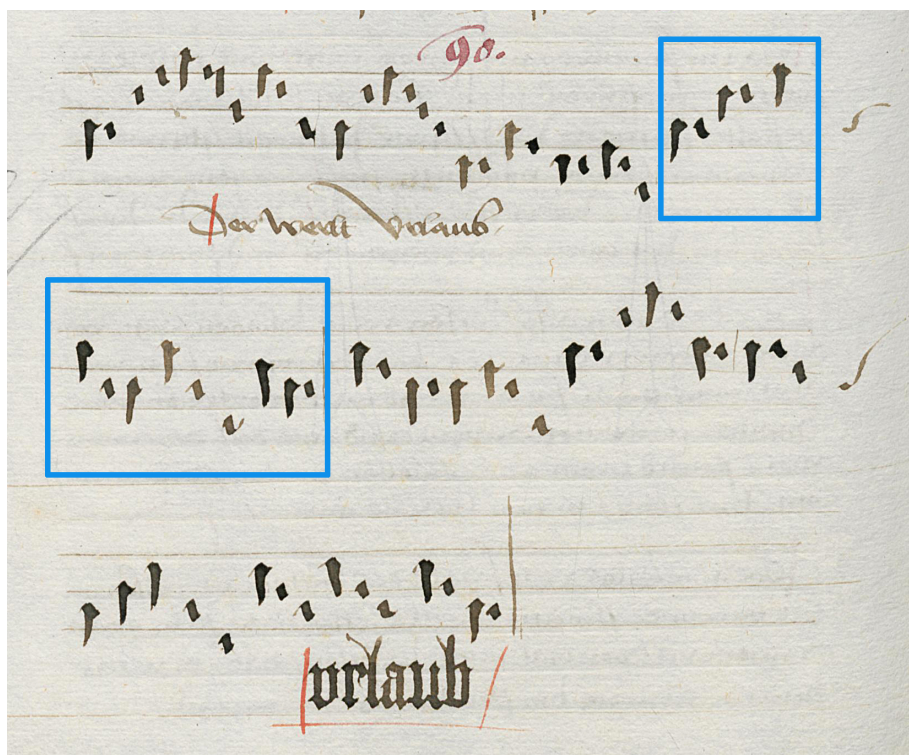 90.
Der werlt Vrlaub
vrlaub